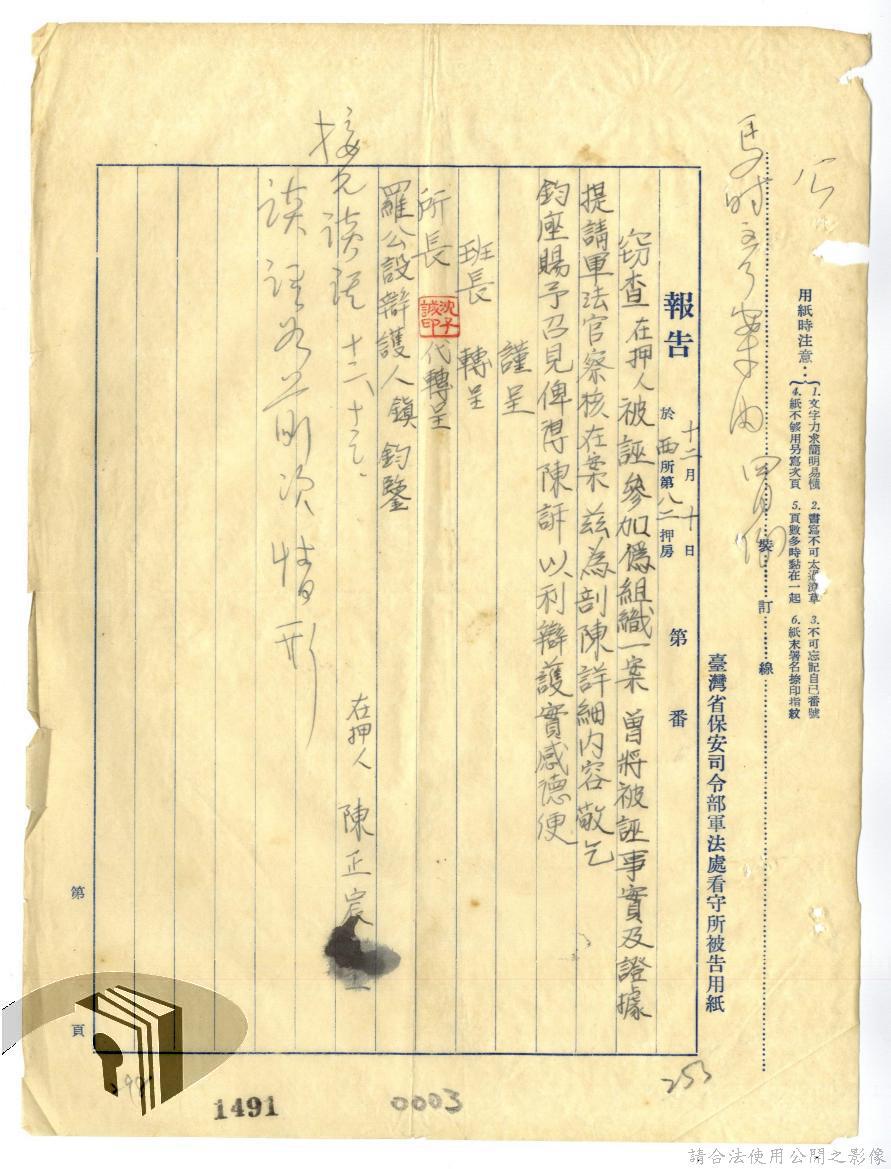 用紙時注意：
1. 文字力求簡明易懂
2. 書寫不可太過潦草
3. 不可忘記自已番號
4. 紙不够用另寫次頁
5. 頁數多時黏在一起
6. 紙末署名捺印指紋
裝訂線
臺灣省保安司令部軍法處看守所被告用紙
報告 於 十二月十日 西所第八二押房 第 番
窃查在押人被誣參加僞組織一案 曾將被誣事實及證據
提請軍法官察核在案 茲為剖陳詳細内容敬乞
鈞座賜予召見俾得陳訴 以利辯護實感德便
謹呈
班長 轉呈
所長 沈子誠印 代轉呈
羅公設辯護人鎮 鈞鑒
在押人 陳正宸
接見談話 十二、十二、
談話如前次情形
第 頁
1491
0003
253
請合法使用公開之影像